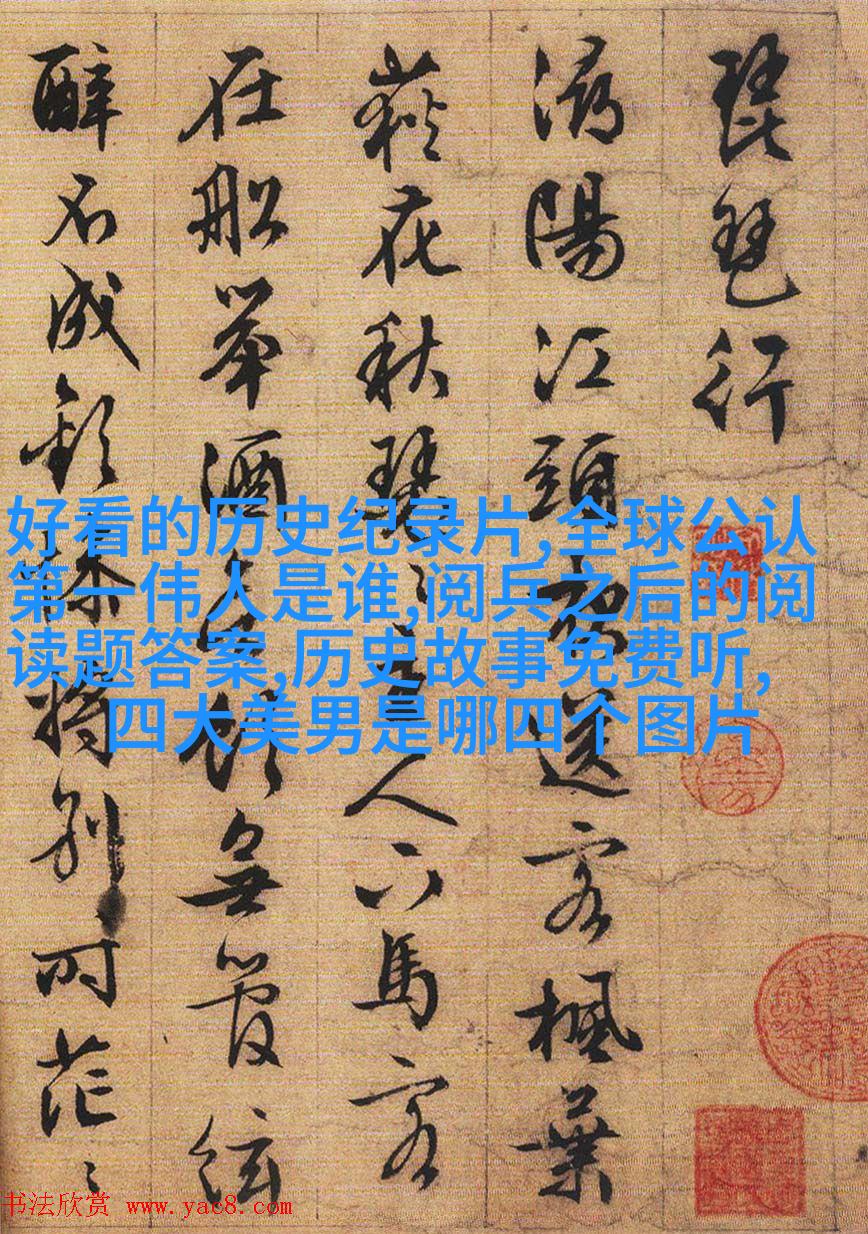 琵琶行
潯陽江頭夜送客楓葉
荻花秋瑟〻主人下馬客
在船舉酒欲飲無管絃
醉不成歡慘將別時茫〻
好看的历史纪录片,全球公认
第一伟人是谁,阅兵之后的阅
读题答案,历史故事免费听,
四大美男是哪四个图片
书法欣赏 www.yac8.com